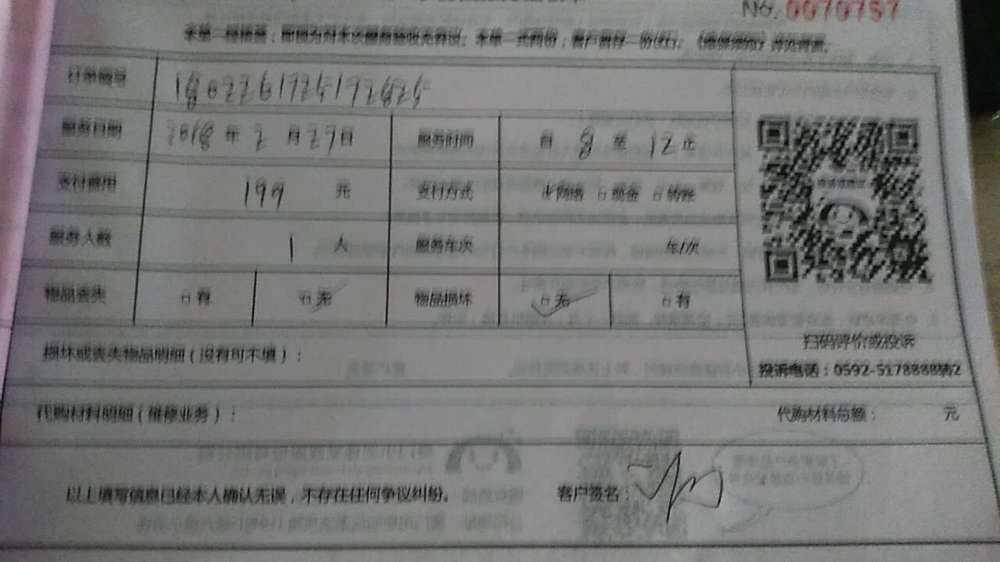 No. 0070757
本单一经签署，即视为对本次服务验收无异议；本单一式两份，客户留存一份
订单编号
服务日期 2018 年 2 月 27 日 服务时间 自 8 至 12 止
支付费用 199 元 支付方式 网络 现金 转账
服务人数 1 人 服务车次 车/次
物品丢失 有 无 物品损坏 无 有
扫码评价或投诉
损坏或丢失物品明细（没有可不填）：
投诉电话：0592-5178888转2
代购材料明细（维修业务）： 代购材料总额： 元
以上填写信息已经本人确认无误，不存在任何争议纠纷。 客户签名：